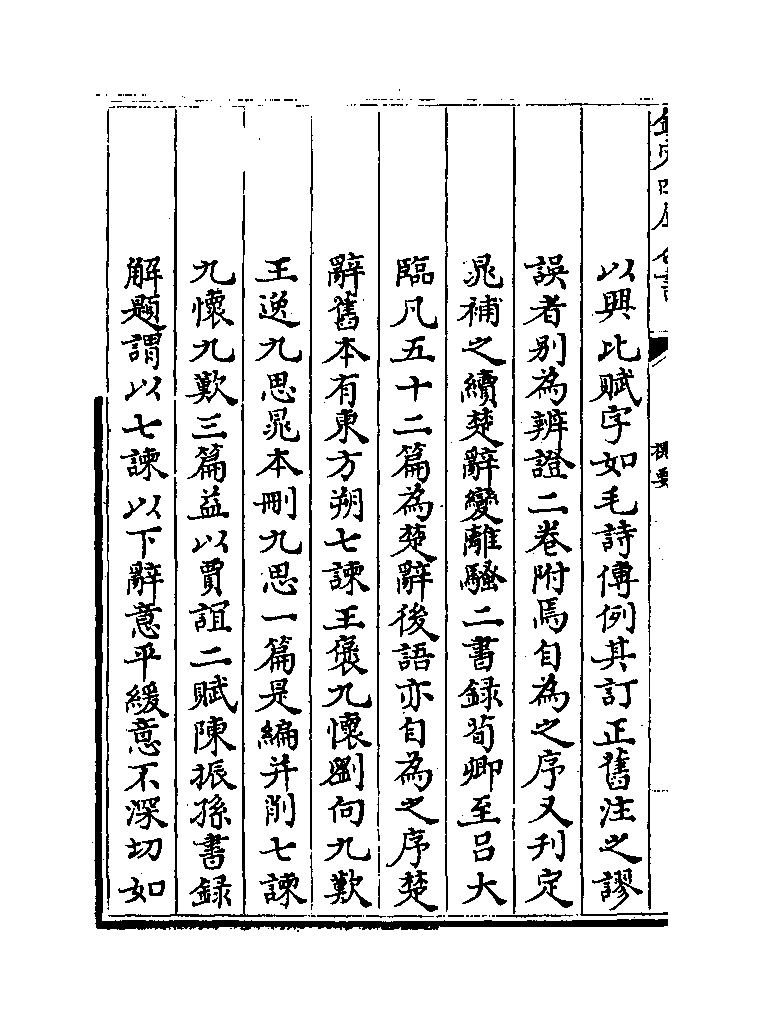 欽定四庫全書
概要
以興比賦字如毛詩傳例其訂正舊注之謬
誤者别為辨證二卷附焉自為之序又刋定
晁補之續楚辭變離騷二書録荀卿至吕大
臨凡五十二篇為楚辭後語亦自為之序楚
辭舊本有東方朔七諫王褒九懷劉向九歎
王逸九思晁本刪九思一篇是編并削七諫
九懷九歎三篇益以賈誼二賦陳振孫書録
解題謂以七諫以下辭意平緩意不深切如